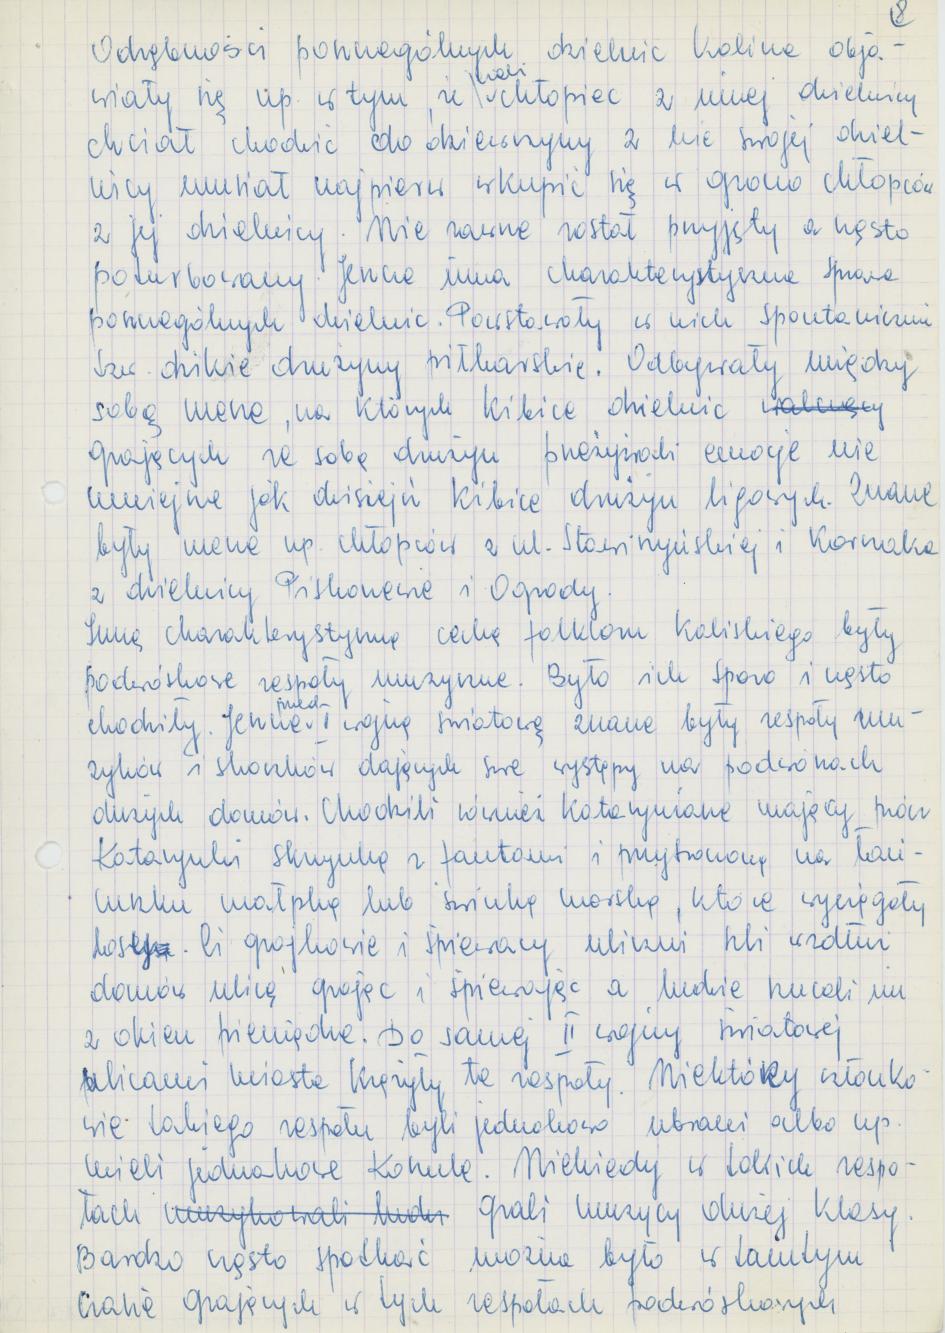 8
Odrębności poszczególnych dzielnic Kalisza obja-
wiały się np. w tym, że jeżeli chłopiec z innej dzielnicy
chciał chodzić do dziewczyny z nie swojej dziel-
nicy musiał najpierw wkupić się w grono chłopców
z jej dzielnicy. Nie zawsze został przyjęty a często
poturbowany. Jeszcze inna charakterystyczna sprawa
poszczególnych dzielnic. Powstawały w nich spontanicznie
tzw. dzikie drużyny piłkarskie. Odbywały między
sobą mecze, na których kibice dzielnic
grających ze sobą drużyn przeżywali emocje nie
mniejsze jak dzisiejsi kibice drużyn ligowych. Znane
były mecze np. chłopców z ul. Stawiszyńskiej i Korczaka
z dzielnicy Piskorzewie i Ogrody.
Inną charakterystyczną cechą folkloru kaliskiego były
podwórkowe zespoły muzyczne. Było ich sporo i często
chodziły. Jeszcze przed I wojną światową znane były zespoły mu-
zyków i skoczków dających swe występy na podwórzach
dużych domów. Chodzili również kataryniarze mający prócz
katarynki skrzynkę z fantami i przytroczoną na łań-
cuszku małpkę lub świnkę morską, które wyciągały
losy. Ci grajkowie i śpiewacy uliczni szli wzdłuż
domów ulicą grając i śpiewając a ludzie rzucali im
z okien pieniądze. Do samej II wojny światowej
ulicami miasta krążyły te zespoły. Niektórzy członko-
wie takiego zespołu byli jednakowo ubrani albo np.
mieli jednakowe koszule. Niekiedy w takich zespo-
łach muzykowali ludzi grali muzycy dużej klasy.
Bardzo często spotkać można było w tamtym
czasie grających w tych zespołach podwórkowych